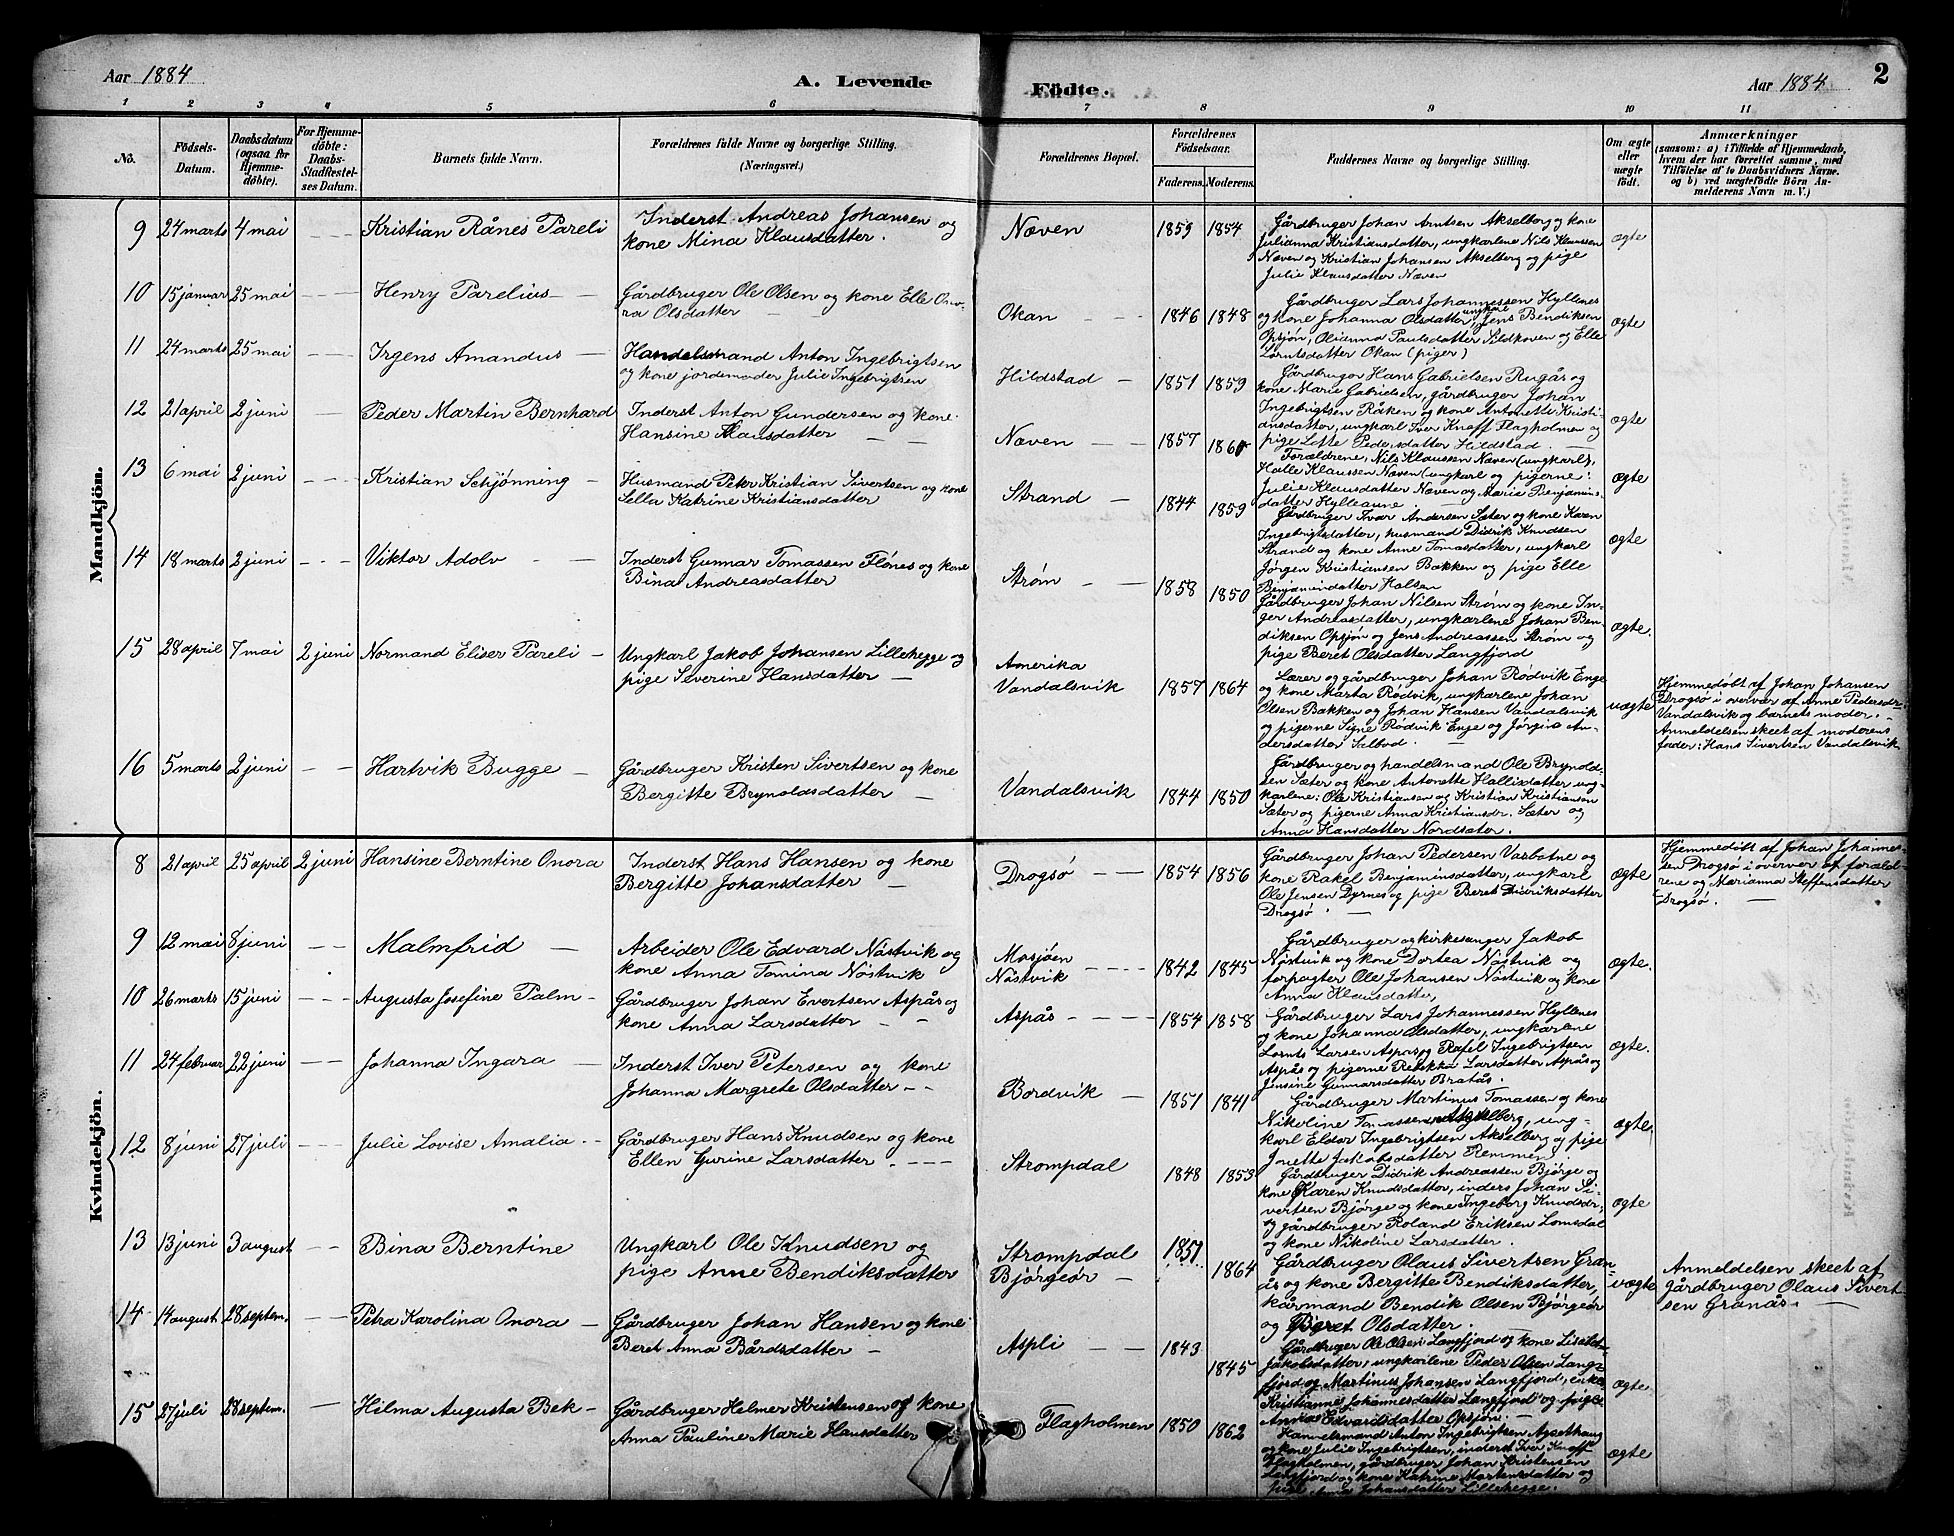 Aar 1884
A. Levende
Födte.
Aar 1884
2
1 2 3 4 5 6 7 8 9 10 11
No.
Födsels-Datum.
Daabsdatum (ogsaa for Hjemmedöbte).
For Hjemmedöbte: Daabs-Stadfæstelses Datum.
Barnets fulde Navn.
Forældrenes fulde Navne og borgerlige Stilling.
(Næringsvei.)
Forældrenes Bopæl.
Forældrenes Födselsaar.
Faderens. Moderens.
Faddernes Navne og borgerlige Stilling.
Om ægte eller uægte födt.
Anmærkninger
(saasom: a) i Tilfælde af Hjemmedaab,
hvem der har forrettet samme, med
Tilföielse af to Daabsvidners Navne,
og b) ved uægtefödte Börn Anmelderens Navn m. V.)
Mandkjön.
9 24 marts 4 mai Kristian Rånes Pareli Inderst Andreas Johansen og
kone Mina Klausdatter. Næven 1859 1854 ægte
Gårdbruger Johan Arntsen Akselberg og kone
Julianna Kristiansdatter, ungkarlene Nils Klaussen
Næven og Kristian Johansen Akselberg og pige
Julie Klausdatter Næven
10 15 januar 25 mai Henry Parelius Gårdbruger Ole Olsen og kone Elle Ono-
ra Olsdatter Okan 1846 1848 ægte
Gårdbruger Lars Johannessen Hyllenes
og kone Johanna Olsdatter, ungkarl Jens Bendiksen
Opsjøn, Olianna Paulsdatter Sildhoven og Elle
Lorntsdatter Okan (piger)
11 24 marts 25 mai Irgens Amandus Handelsmand Anton Ingebrigtsen
og kone jordemoder Julie Ingebrigtsen Hildstad 1851 1859 ægte
Gårdbruger Hans Gabrielsen Rugås og
kone Marie Gabrielsen, gårdbruger Johan
Ingebrigtsen Råken og kone Antonette Kristi-
ansdatter, ungkarl Iver Knoff Flagholmen og
pige Lotte Pedersdatter Hildstad.
12 21 april 2 juni Peder Martin Bernhard Inderst Anton Gundersen og kone
Hansine Klausdatter Næven 1857 ægte
Forældrene, Nils Klaussen Næven (ungkarl),
Halle Klaussen Næven (ungkarl og pigerne:
Julie Klausdatter Næven og Maria Benjamins-
datter Hylleaune
13 6 mai 2 juni Kristian Schjønning Husmand Peter Kristian Sivertsen og kone
Sella Katrine Kristiansdatter Strand 1844 1859 ægte
Gårdbruger Ivar Andersen Sæter og kone Karen
Ingebrigtsdatter, husmand Didrik Knudsen
Strand og kone Anne Tomasdatter, ungkarl
Jörgen Kristiansen Bakken og pige Elle
Benjamindatter Halsen
14 18 marts 2 juni Viktor Adolv Inderst Gunnar Tomassen Flönes og kone
Bina Andreasdatter Strøm 1858 1850 ægte
Gårdbruger Johan Nilsen Strøm og kone In-
ger Andreasdatter, ungkarlene Johan Ben-
diksen Opsjøn og Jens Andreassen Strøm og
pige Beret Olsdatter Langfjord
15 28 april 7 mai 2 juni Normand Eliser Pareli Ungkarl Jakob Johansen Lillehegge og
pige Severine Hansdatter Amerika
Vandalsvik 1857 1864 uægte
Lærer og gårdbruger Johan Rødvik Enge
og kone Marta Rødvik, ungkarlene Johan
Olsen Bakken og Johan Hansen Vandalsvik
og pigerne Signe Rødvik Enge og Jörgine An-
dersdatter Salbod.
Hjemmedøbt af Johan Johansen
Drogsø i overvær af Anne Pedersdr.
Vandalsvik og barnets moder.
Anmeldelsen skeet af moderens
fader: Hans Sivertsen Vandalsvik
16 5 marts 2 juni Hartvik Bugge Gårdbruger Kristen Sivertsen og kone
Bergitte Brynoldsdatter Vandalsvik 1844 1850
Gårdbruger og handelsmand Ole Brynold-
sen Sæter og kone Antonette Hallisdatter ung-
karlene: Ole Kristiansen og Kristian Kristiansen
Sæter og pigerne Anna Kristiansdr. Sæter og
Anna Hansdatter Nordsæter.
Kvindekjön.
8 21 april 25 april 2 juni Hansine Berntine Onora Inderst Hans Hansen og kone
Bergitte Johansdatter Drogsø 1854 1856 ægte
Gårdbruger Johan Pedersen Vasbotne og
kone Rakel Benjaminsdatter, ungkarl
Ole Jensen Dyrnes og pige Beret Didriksdatter
Drogsø
Hjemmedøbt af Johan Johannes-
sen Drogsø i overvær af foræld-
rene og Marianna Steffensdatter
Drogsø.
9 12 mai 8 juni Malmfrid Arbeider Ole Edvard Nöstvik og
kone Anna Tomina Nöstvik Mosjøen
Nöstvik 1842 1845 ægte.
Gårdbruger og kirkesanger Jakob
Nöstvik og kone Dortea Nöstvik og
forpagter Ole Johansen Nöstvik og kone
Anna Klausdatter,
10 26 marts 15 juni Augusta Josefine Palm Gårdbruger Johan Evertsen Aspås og
kone Anna Larsdatter Aspås 1854 1858 ægte.
Gårdbruger Lars Johannessen Hyllenes
og kone Johanna Olsdatter, ungkarlene
Lornts Larsen Aspås og Rafel Ingebrigtsen
Aspås og pigerne Rebekka Larsdatter Aspås og
Jensine Gunnarsdatter Bratås.
11 24 februar 22 juni Johanna Ingara Inderst Iver Petersen og kone
Johanna Margrete Olsdatter Bordvik 1851 1841 ægte
Gårdbruger Martinus Tomassen og kone
Nikoline Tomassen Akselberg, ung-
karl Eldor Ingebrigtsen Akselberg og pige
Jonette Jakobsdatter Remmen
12 8 juni 27 juli Julie Lovise Amalia Gårdbruger Hans Knudsen og kone
Ellen Gurine Larsdatter Strompdal 1848 1853 ægte
Gårdbruger Didrik Andreassen Bjørge og
kone Karen Knudsdatter, inders Johan Si-
vertsen Bjørge og kone Ingeborg Knudsdr,
og gårdbruger Roland Eriksen Lomsdal
og kone Nikoline Larsdatter.
13 13 juni 3 august Bina Berntine Ungkarl Ole Knudsen og
pige Anne Bendiksdatter Strompdal
Bjørgeør 1851 1864 uægte
Gårdbruger Olaus Sivertsen Gran-
ås og kone Bergitte Bendiksdatter,
kårmand Bendik Olsen Bjørgeør
og Beret Olsdatter.
Anmeldelsen skeet af
gårdbruger Olaus Sivert-
sen Granås.
14 14 august 28 septem. Petra Karolina Onora Gårdbruger Johan Hansen og kone
Beret Anna Bårdsdatter Aspli 1843 1845 ægte.
Gårdbruger Ole Olsen Langfjord og kone
Jakobsdatter, ungkarlene Peder Olsen Lang-
fjord og Martinus Johansen Langfjord, enke
Kristianne Johannesdatter Langfjord og pige
Edvardsdatter Opsjøn.
15 27 juli 28 septem. Hilma Augusta Bek Gårdbruger Helmer Kristensen og kone
Anna Pauline Marie Hansdatter Flagholmen 1850 1862 ægte
Handelsmand Anton Ingebrigtsen
og kone Julie Ingebrigtsen, inderst Iver Knoff
Flagholmen, gårdbruger Johan Kristensen
Langfjord og kone Katrine Mortensdatter og
pige Anna Johansdatter Lillehegge.